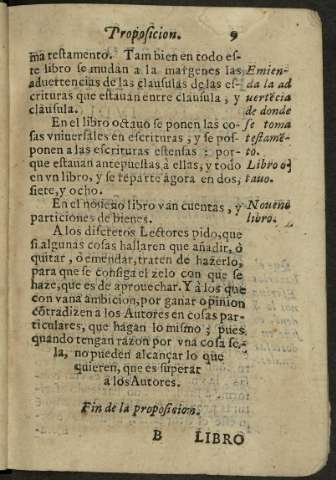 Proposicion. 9
ma testamento. Tambien en todo es-
te libro se mudan a la margenes las
aduertencias de las clausulas de las es-
crituras que estauan entre clausula, y
clausula.
Emien-
da la ad
uertẽcia
de donde
se toma
testamẽ-
to.
En el libro octauo se ponen las co-
sas vniuersales en escrituras, y se pos-
ponen a las escrituras estensas: por-
que estauan antepuestas a ellas, y todo
en vn libro, y se reparte agora en dos,
siete, y ocho.
Libro o-
tauo.
En el noueno libro van cuentas, y
particiones de bienes.
Noueno
libro.
A los discretos Lectores pido, que
si algunas cosas hallaren que añadir, ò
quitar, ò emendar, traten de hazerlo,
para que se consiga el zelo con que se
haze, que es de aprouechar. Y à los que
con vana ambicion, por ganar opinion
cõtradizen à los Autores en cosas par-
ticulares, que hagan lo mismo; pues
quando tengan razon por vna cosa so-
la, no pueden alcançar lo que
quieren, que es superar
a los Autores.
Fin de la proposicion.
B LIBRO